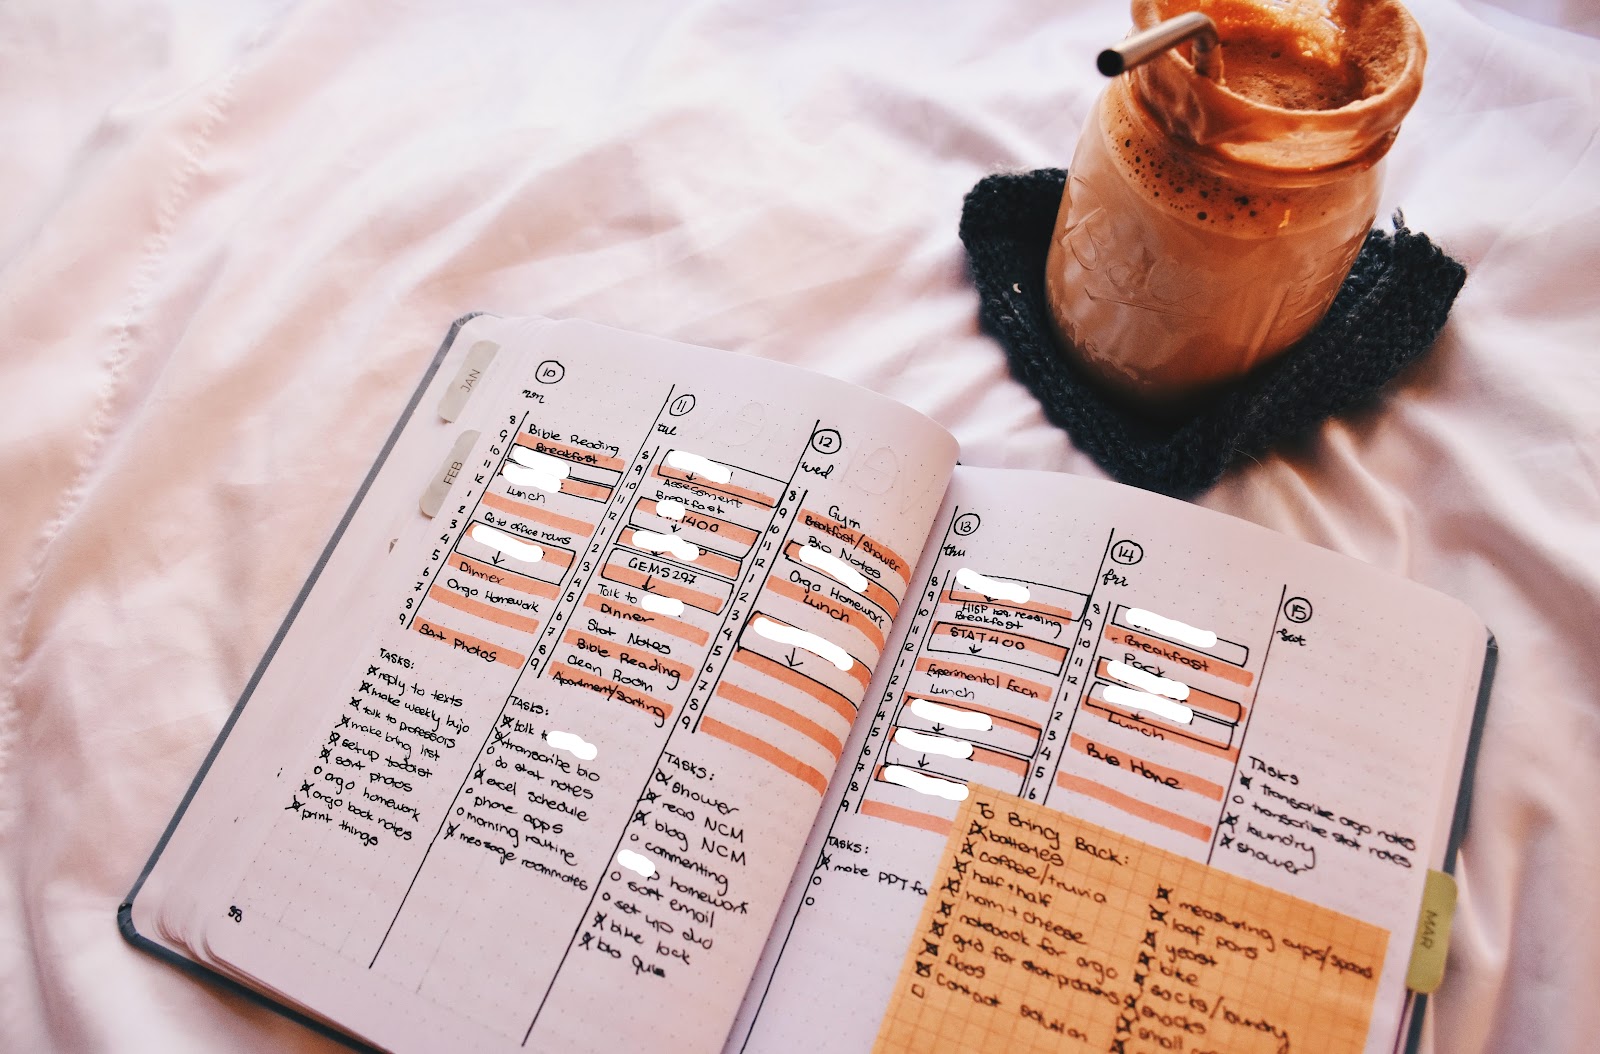 JAN
FEB
10
mon
8
9
10
11
12
1
2
3
4
5
6
7
8
9
Bible Reading
Breakfast
Lunch
Go to office hours
Dinner
Orgo Homework
Sort Photos
TASKS:
reply to texts
make weekly bujo
talk to professors
make bring list
setup todoist
sort photos
orgo homework
orgo book notes
print things
38
11
tue
8
9
10
11
12
1
2
3
4
5
6
7
8
9
Assessment
Breakfast
T400
GEMS297
Talk to
Dinner
Stat Notes
Bible Reading
Clean Room
Apartment/Sorting
TASKS:
talk t
transcribe bio
do stat notes
excel schedule
phone apps
morning routine
message roommates
12
wed
8
9
10
11
12
1
2
3
4
5
6
7
8
9
Gym
Breakfast/Shower
Bio Notes
Orgo Homework
Lunch
TASKS:
shower
read NCM
blog NCM
commenting
homework
sort email
set up duo
bike lock
bio
13
thu
8
9
10
11
12
1
2
3
4
5
6
7
8
9
HISP reading
Breakfast
STAT400
Experimental Econ
Lunch
TASKS:
make PPT fo
14
fri
8
9
10
11
12
1
2
3
4
5
6
Breakfast
Pack
Lunch
Bus Home
15
sat
TASKS
transcribe orgo notes
transcribe stat notes
laundry
shower
To Bring Back:
batteries
coffee/truvia
half+half
ham + cheese
notebook for orgo
grid for stat problems
floss
contact solution
measuring cups/spoons
loaf pans
yeast
bike
socks/laundry
snacks
small
MAR